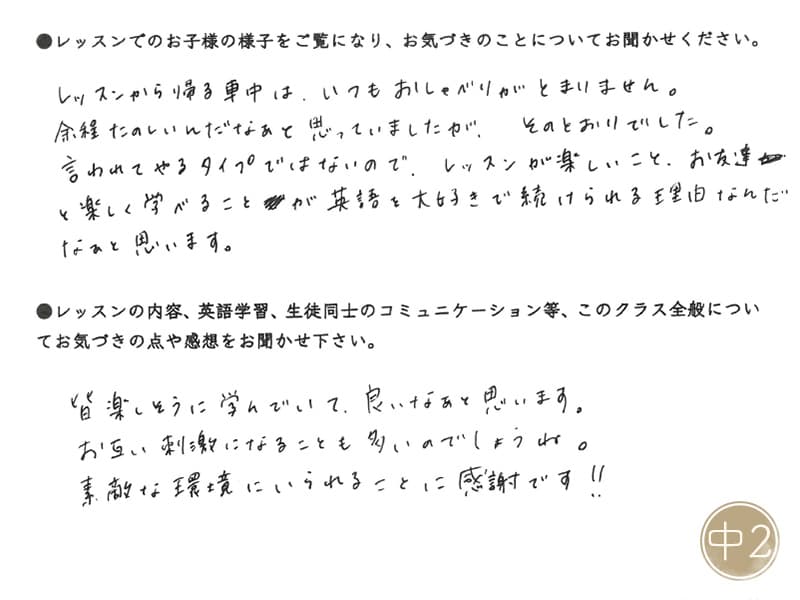 ●レッスンでのお子様の様子をご覧になり、お気づきのことについてお聞かせください。
レッスンから帰る車中は、いつもおしゃべりがとまりません。
余程たのしいんだなぁと思っていましたが、そのとおりでした。
言われてやるタイプではないので、レッスンが楽しいこと、お友達
と楽しく学べることが英語を大好きで続けられる理由なんだ
なぁと思います。
●レッスンの内容、英語学習、生徒同士のコミュニケーション等、このクラス全般につい
てお気づきの点や感想をお聞かせ下さい。
皆楽しそうに学んでいて、良いなぁと思います。
お互い刺激になることも多いのでしょうね。
素敵な環境にいられることに感謝です!!
中2